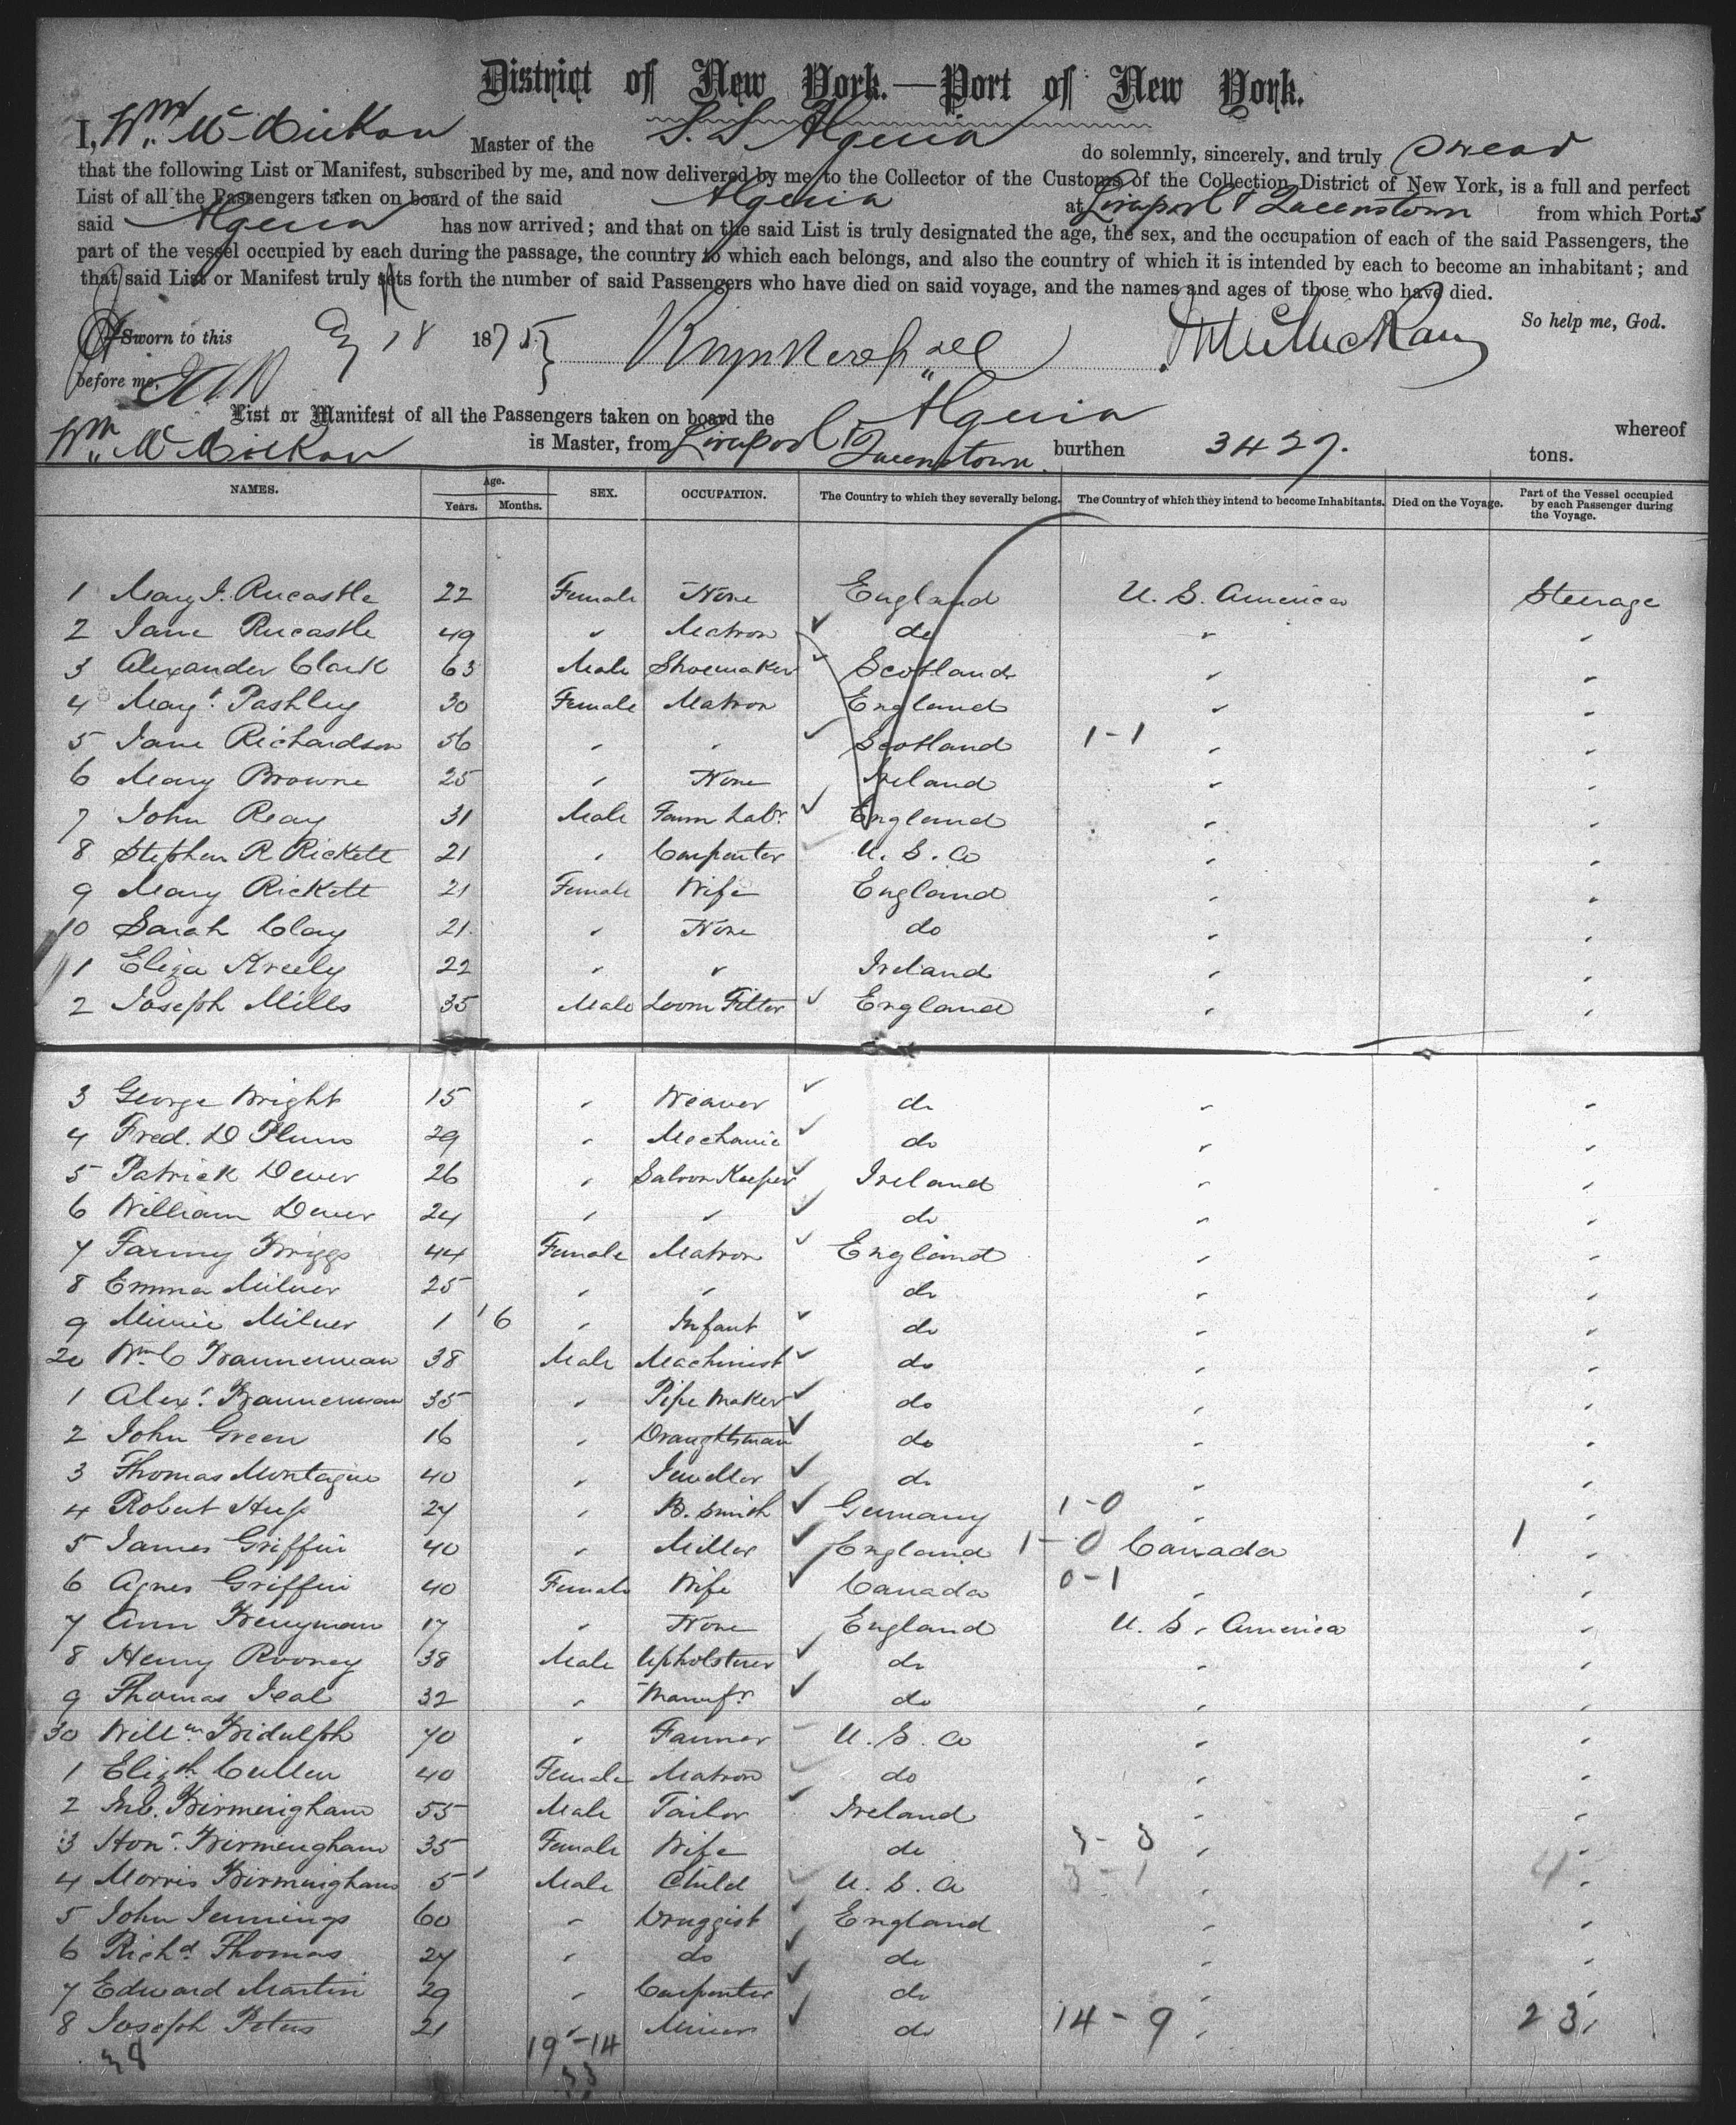 District of New York.—Port of New York.
I, Wm. McMickan Master of the S. S Algeria do solemnly, sincerely, and truly swear
that the following List or Manifest, subscribed by me, and now delivered by me to the Collector of the Customs of the Collection District of New York, is a full and perfect
List of all the Passengers taken on board of the said Algeria at Liverpool & Queenstown from which Ports
said Algeria has now arrived; and that on the said List is truly designated the age, the sex, and the occupation of each of the said Passengers, the
part of the vessel occupied by each during the passage, the country to which each belongs, and also the country of which it is intended by each to become an inhabitant; and
that said List or Manifest truly sets forth the number of said Passengers who have died on said voyage, and the names and ages of those who have died.
So help me, God.
Sworn to this 18 1875 Wm McMickan
before me,
List or Manifest of all the Passengers taken on board the Algeria whereof
Wm. McMickan is Master, from Liverpool & Queenstown. burthen 3427. tons.
NAMES. Age. Years. Months. SEX. OCCUPATION. The Country to which they severally belong. The Country of which they intend to become Inhabitants. Died on the Voyage. Part of the Vessel occupied by each Passenger during the Voyage.
1 Mary J. Rucastle 22 Female None England U. S. America Steerage
2 Jane Rucastle 49 " Matron do " "
3 Alexander Clark 63 Male Shoemaker Scotland " "
4 Margt. Pashley 30 Female Matron England " "
5 Jane Richardson 56 " " Scotland 1-1 " "
6 Mary Browne 25 " None Ireland " "
7 John Reay 31 Male Farm Labr. England " "
8 Stephen R Rickett 21 " Carpenter U. S. a " "
9 Mary Rickett 21 Female Wife England " "
10 Sarah Clay 21 " None do " "
11 Eliza Kreely 22 " " Ireland " "
2 Joseph Mills 35 Male Loom Fitter England " "
3 George Wright 15 " Weaver do " "
4 Fred. D Plum 29 " Mechanic do " "
5 Patrick Dever 26 " Saloon Keeper Ireland " "
6 William Dever 24 " " do " "
7 Fanny Briggs 44 Female Matron England " "
8 Emma Milner 25 " " do " "
9 Minnie Milner 1 6 " Infant do " "
20 Wm C Bannerman 38 Male Machinist do " "
1 Alexr. Bannerman 35 " Pipe Maker do " "
2 John Green 16 " Draughtsman do " "
3 Thomas Montague 40 " Jeweller do " "
4 Robert 27 " B. Smith Germany 1-0 " "
5 James Griffin 40 " Miller England 1-0 Canada 1 "
6 Agnes Griffin 40 Female Wife Canada 0-1 " "
7 Ann Berryman 17 " None England U. S. America "
8 Henry Rooney 38 Male Upholsterer do " "
9 Thomas Teal 32 " Manufr. do " "
30 Willm. Bidulph 70 " Farmer U. S. a " "
1 Elizth. Cullen 40 Female Matron do " "
2 Jno. Birmingham 55 Male Tailor Ireland " "
3 Honr. Birmingham 35 Female Wife do 3-3 " "
4 Morris Birmingham 5 Male Child U. S. a 3-1 " 4 "
5 John Jennings 60 " Druggist England " "
6 Richd. Thomas 27 " do do " "
7 Edward Martin 29 " Carpenter do " "
8 Joseph Peters 21 " Miner do 14-9 " 23 "
38 19-14
33